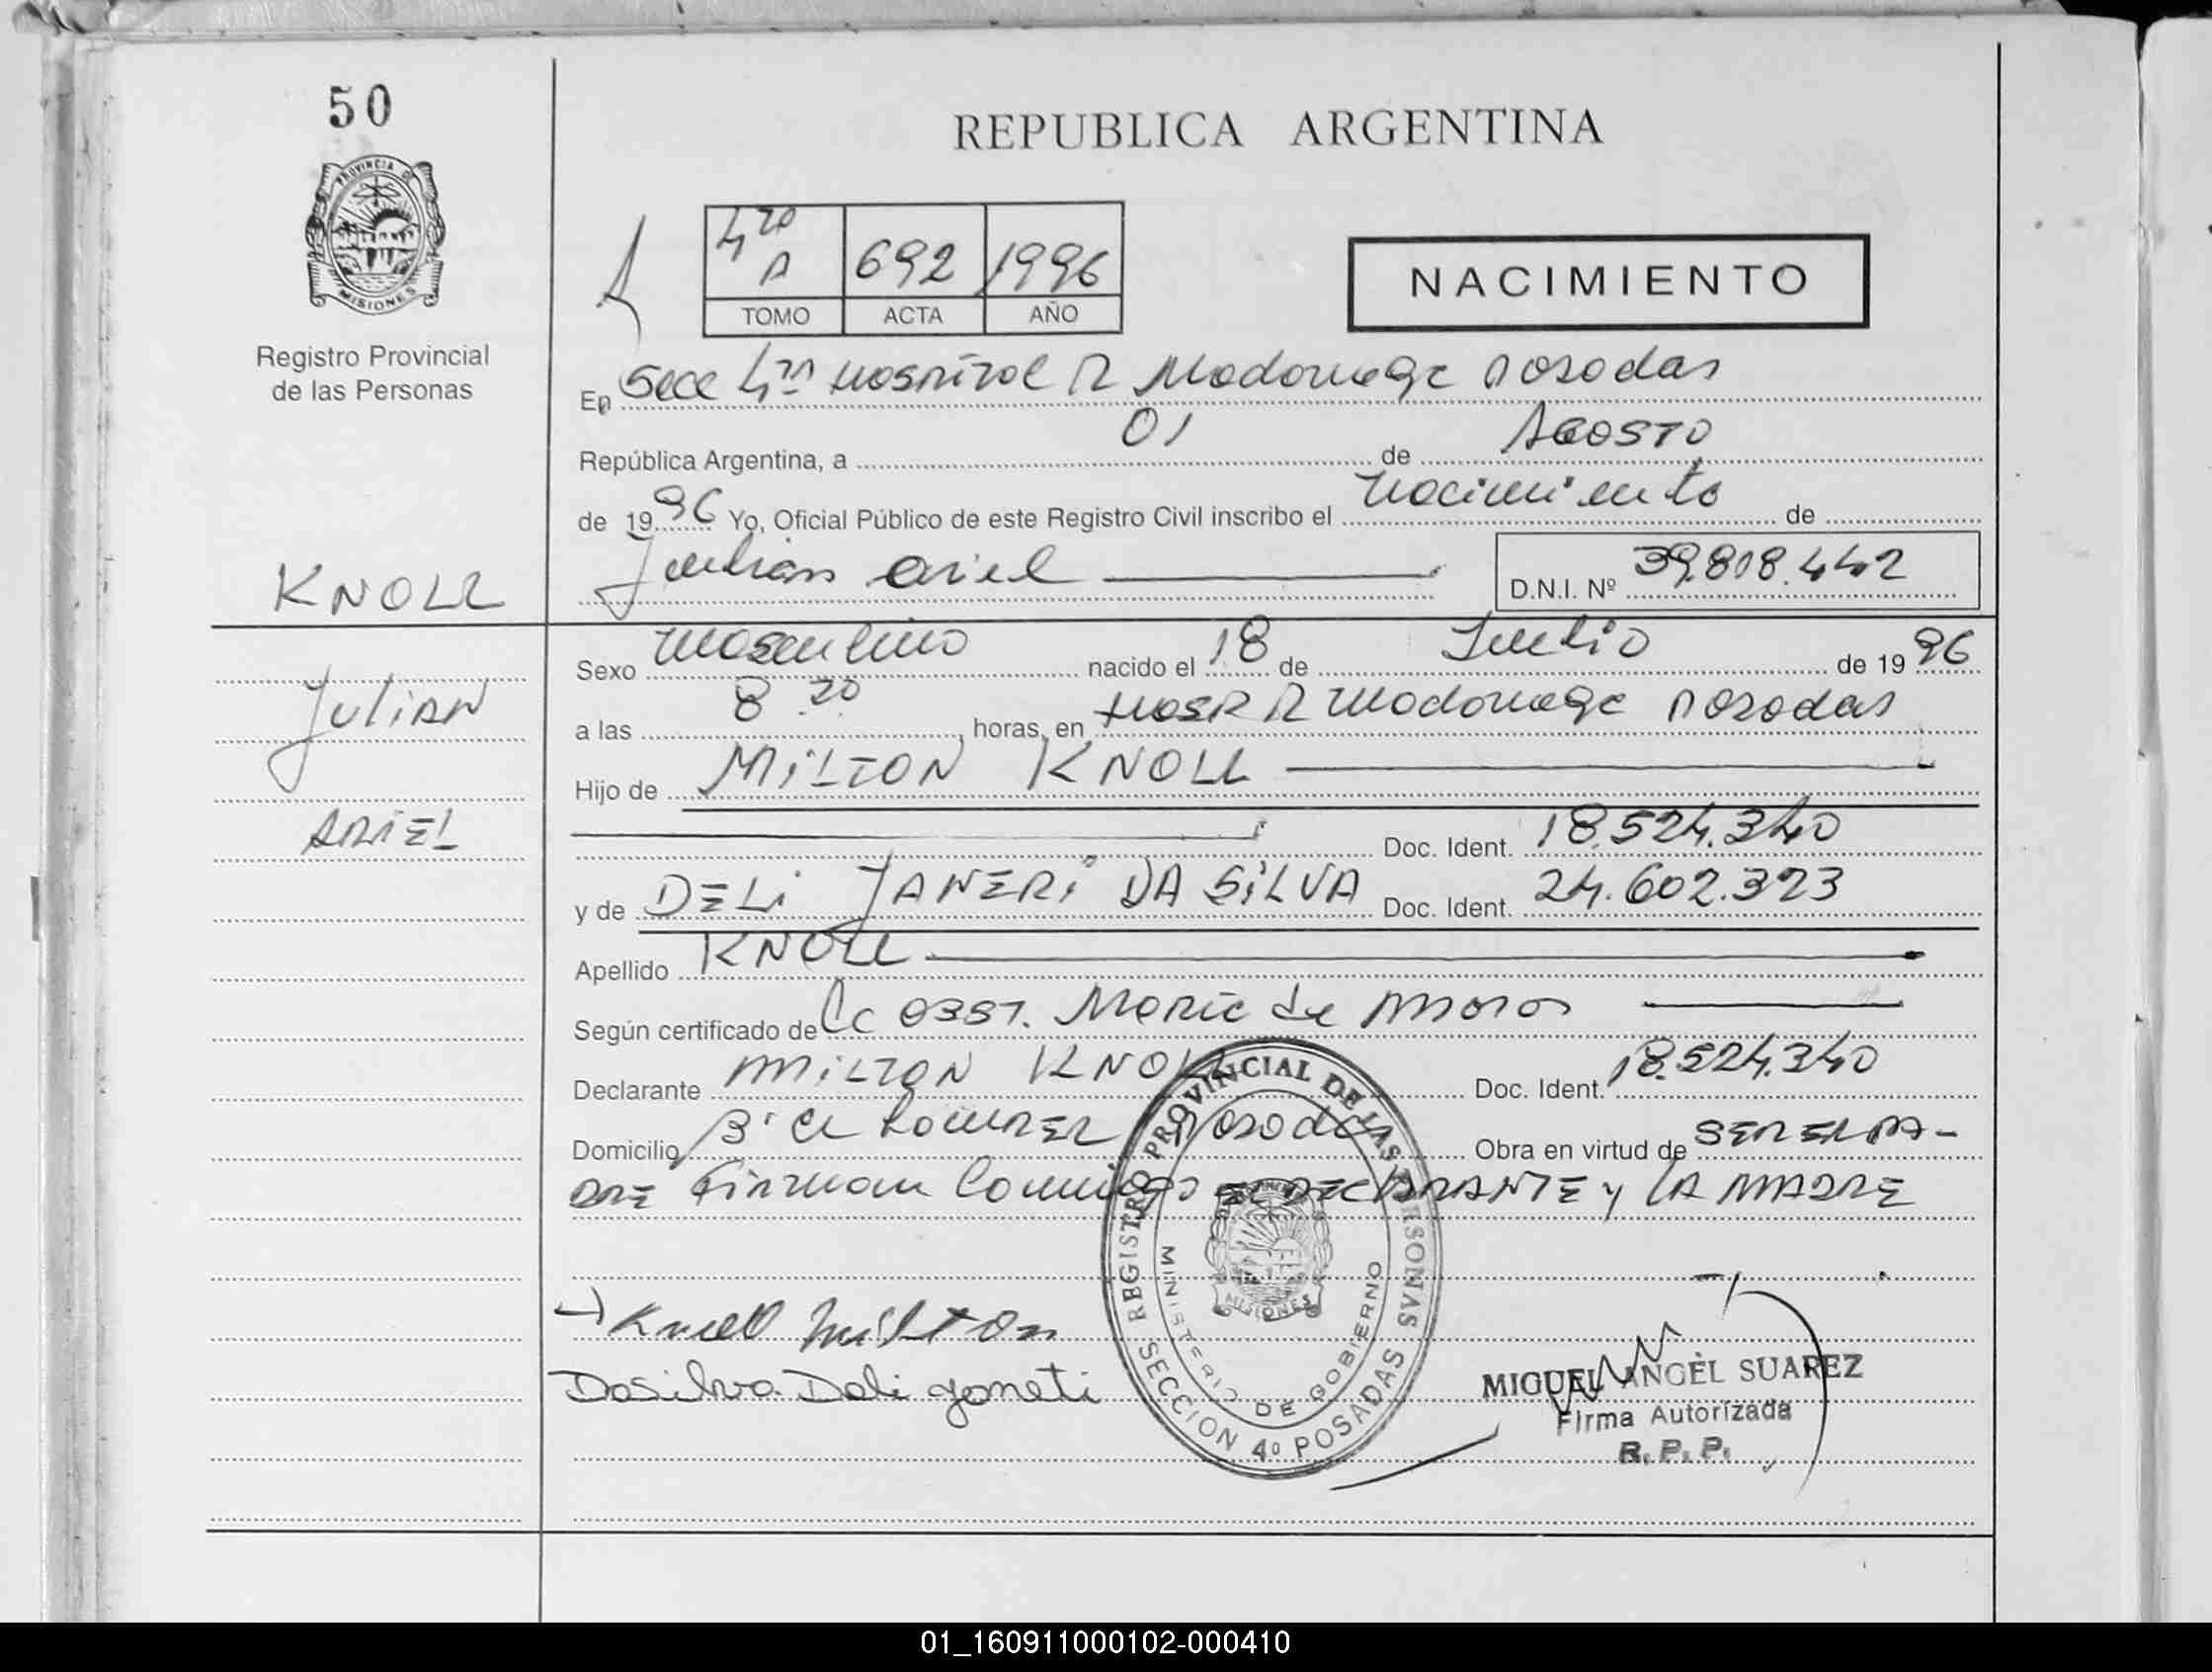 50
REPUBLICA ARGENTINA
PROVINCIA DE MISIONES
Registro Provincial
de las Personas
4to A 692 1996
TOMO ACTA AÑO
NACIMIENTO
En Secc 4ta Hospital R Madariaga Posadas
República Argentina, a 01 de Agosto
de 1996 Yo, Oficial Público de este Registro Civil inscribo el Nacimiento de
Julian Ariel D.N.I. Nº 39.818.442
KNOLL
Sexo Masculino nacido el 18 de Julio de 1996
JULIAN
a las 8 20 horas, en Hosp R Madariaga Posadas
Hijo de MILTON KNOLL
ARIEL
Doc. Ident. 18.524.340
y de DELI JANERI DA SILVA Doc. Ident. 24.602.323
Apellido KNOLL
Según certificado de la obst. Maria de
Declarante MILTON KNOLL Doc. Ident. 18.524.340
Domicilio Posadas Obra en virtud de SER EL PA-
DRE Firman Conmigo EL DECLARANTE y LA MADRE
Knoll Milton
Dasilva Deli
REGISTRO PROVINCIAL DE LAS PERSONAS
MINISTERIO DE GOBIERNO
MISIONES
SECCION 4º POSADAS
MIGUEL ANGEL SUAREZ
Firma Autorizada
R. P. P.
01_160911000102-000410